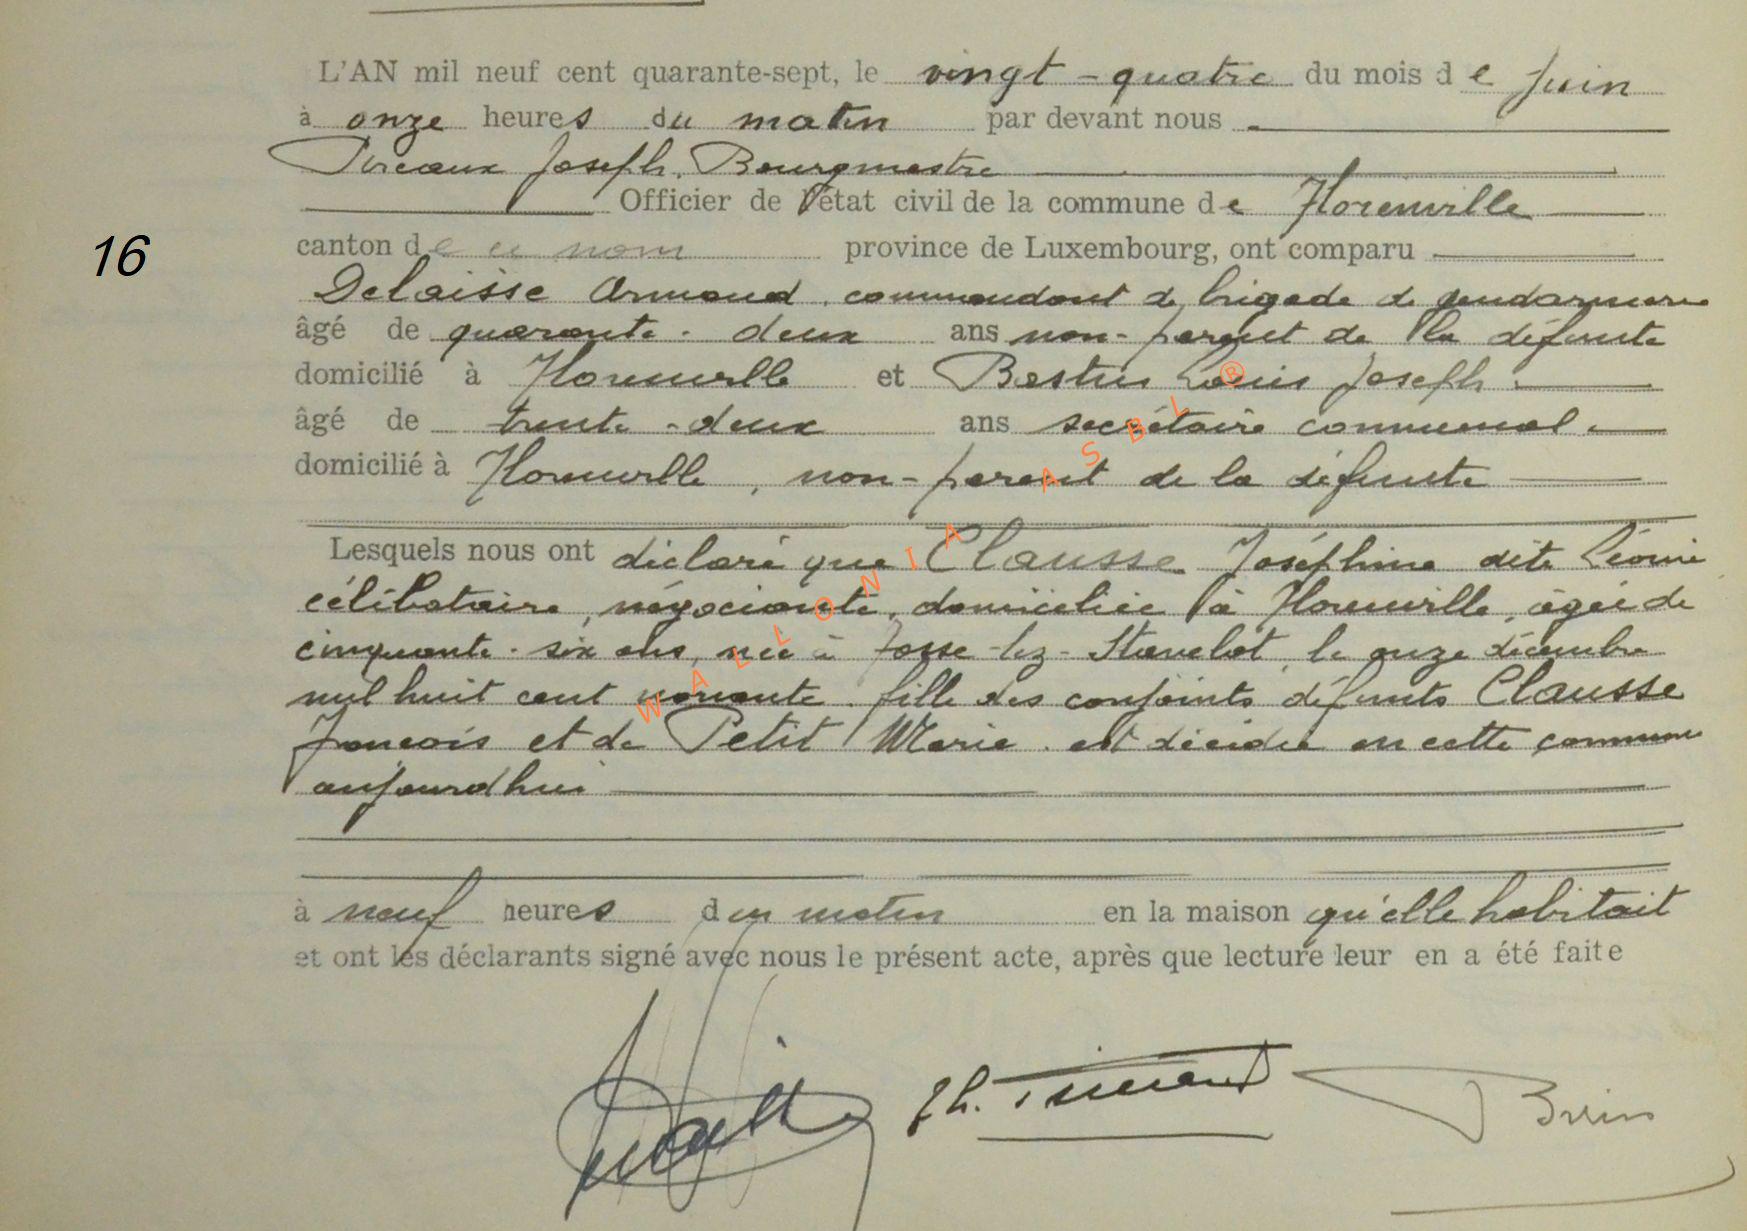 L'AN mil neuf cent quarante-sept, le vingt-quatre du mois de Juin
à onze heures du matin par devant nous
Joseph, Bourgmestre
Officier de l'état civil de la commune de Florenville
16
canton de ce nom province de Luxembourg, ont comparu
Delaisse Armand, commandant de brigade de gendarmerie
âgé de quarante-deux ans non-parent de la défunte
domicilié à Florenville et Bastin Louis Joseph
âgé de trente-deux ans secrétaire communal.
domicilié à Florenville, non-parent de la défunte
Lesquels nous ont déclaré que Clausse Joséphine dite Léonie
célibataire, négociante, domiciliée à Florenville, âgée de
cinquante-six ans, née à Fosse-lez-Stavelot, le onze décembre
mil huit cent nonante, fille des conjoints défunts Clausse
François et de Petit Marie, est décédée en cette commune
aujourd'hui
à neuf heures du matin en la maison qu'elle habitait
et ont les déclarants signé avec nous le présent acte, après que lecture leur en a été faite
WALLONIA ASBL ®